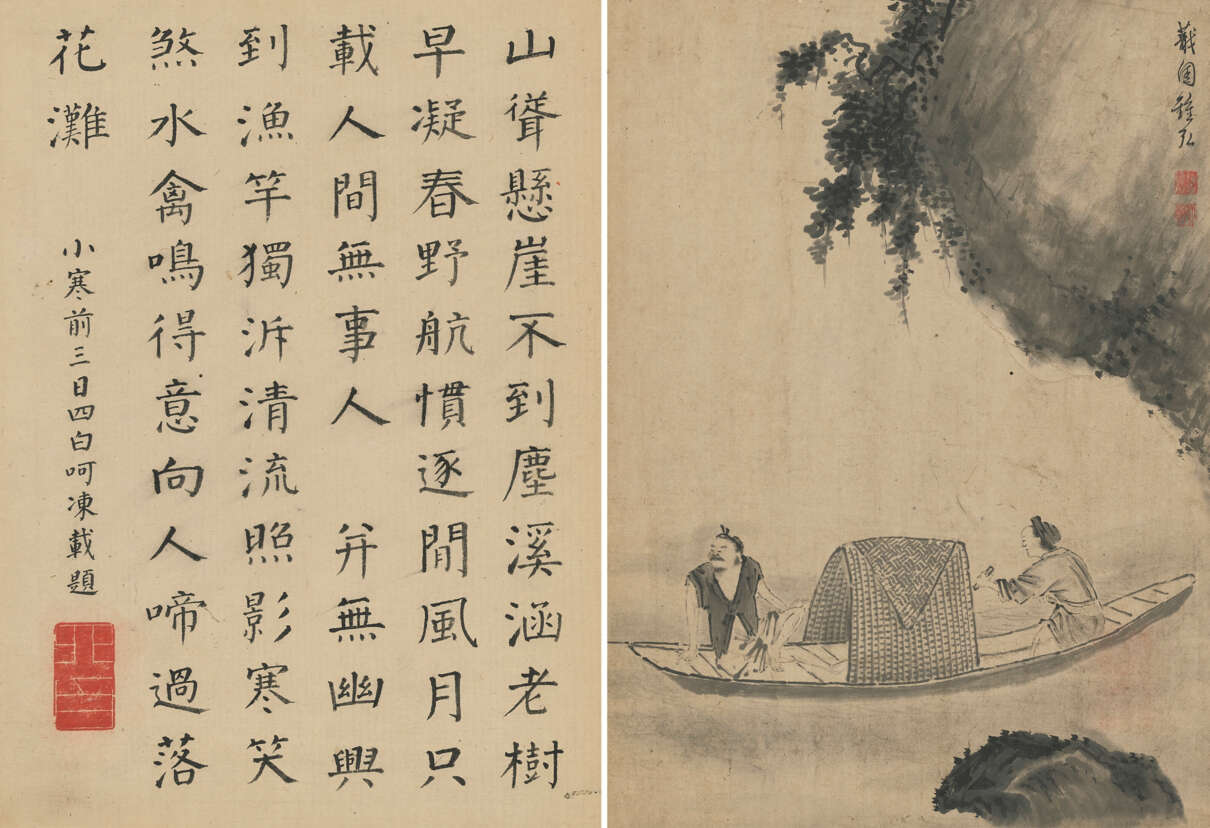 山聳懸崖不到塵溪涵老樹
早凝春野航慣逐閒風月只
載人間無事人 并無幽興
到漁竿獨泝清流照影寒笑
煞水禽鳴得意向人啼過落
花灘
小寒前三日四白呵凍載題